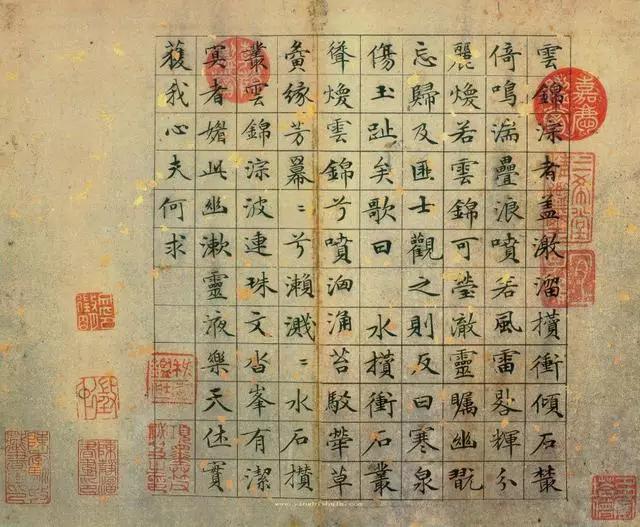 雲錦淙者盖激溜攢衝傾石叢
倚鳴湍疊浪噴若風雷輝分
麗煥若雲錦可瑩澈靈矚幽翫
忘歸及匪士觀之則反曰寒泉
傷玉趾矣歌曰 水攢衝石叢
聳煥雲錦兮噴洶涌苔駁犖草
夤緣芳冪〻兮瀨濺〻水石攢
叢雲錦淙波連珠文沓峯有潔
冥者媚此幽漱靈液樂天休實
獲我心夫何求